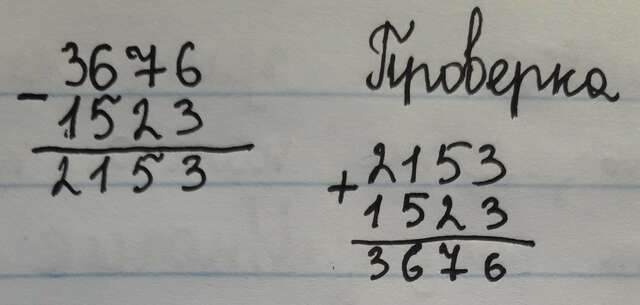 3676
- 1523
2153
Проверка
2153
+ 1523
3676